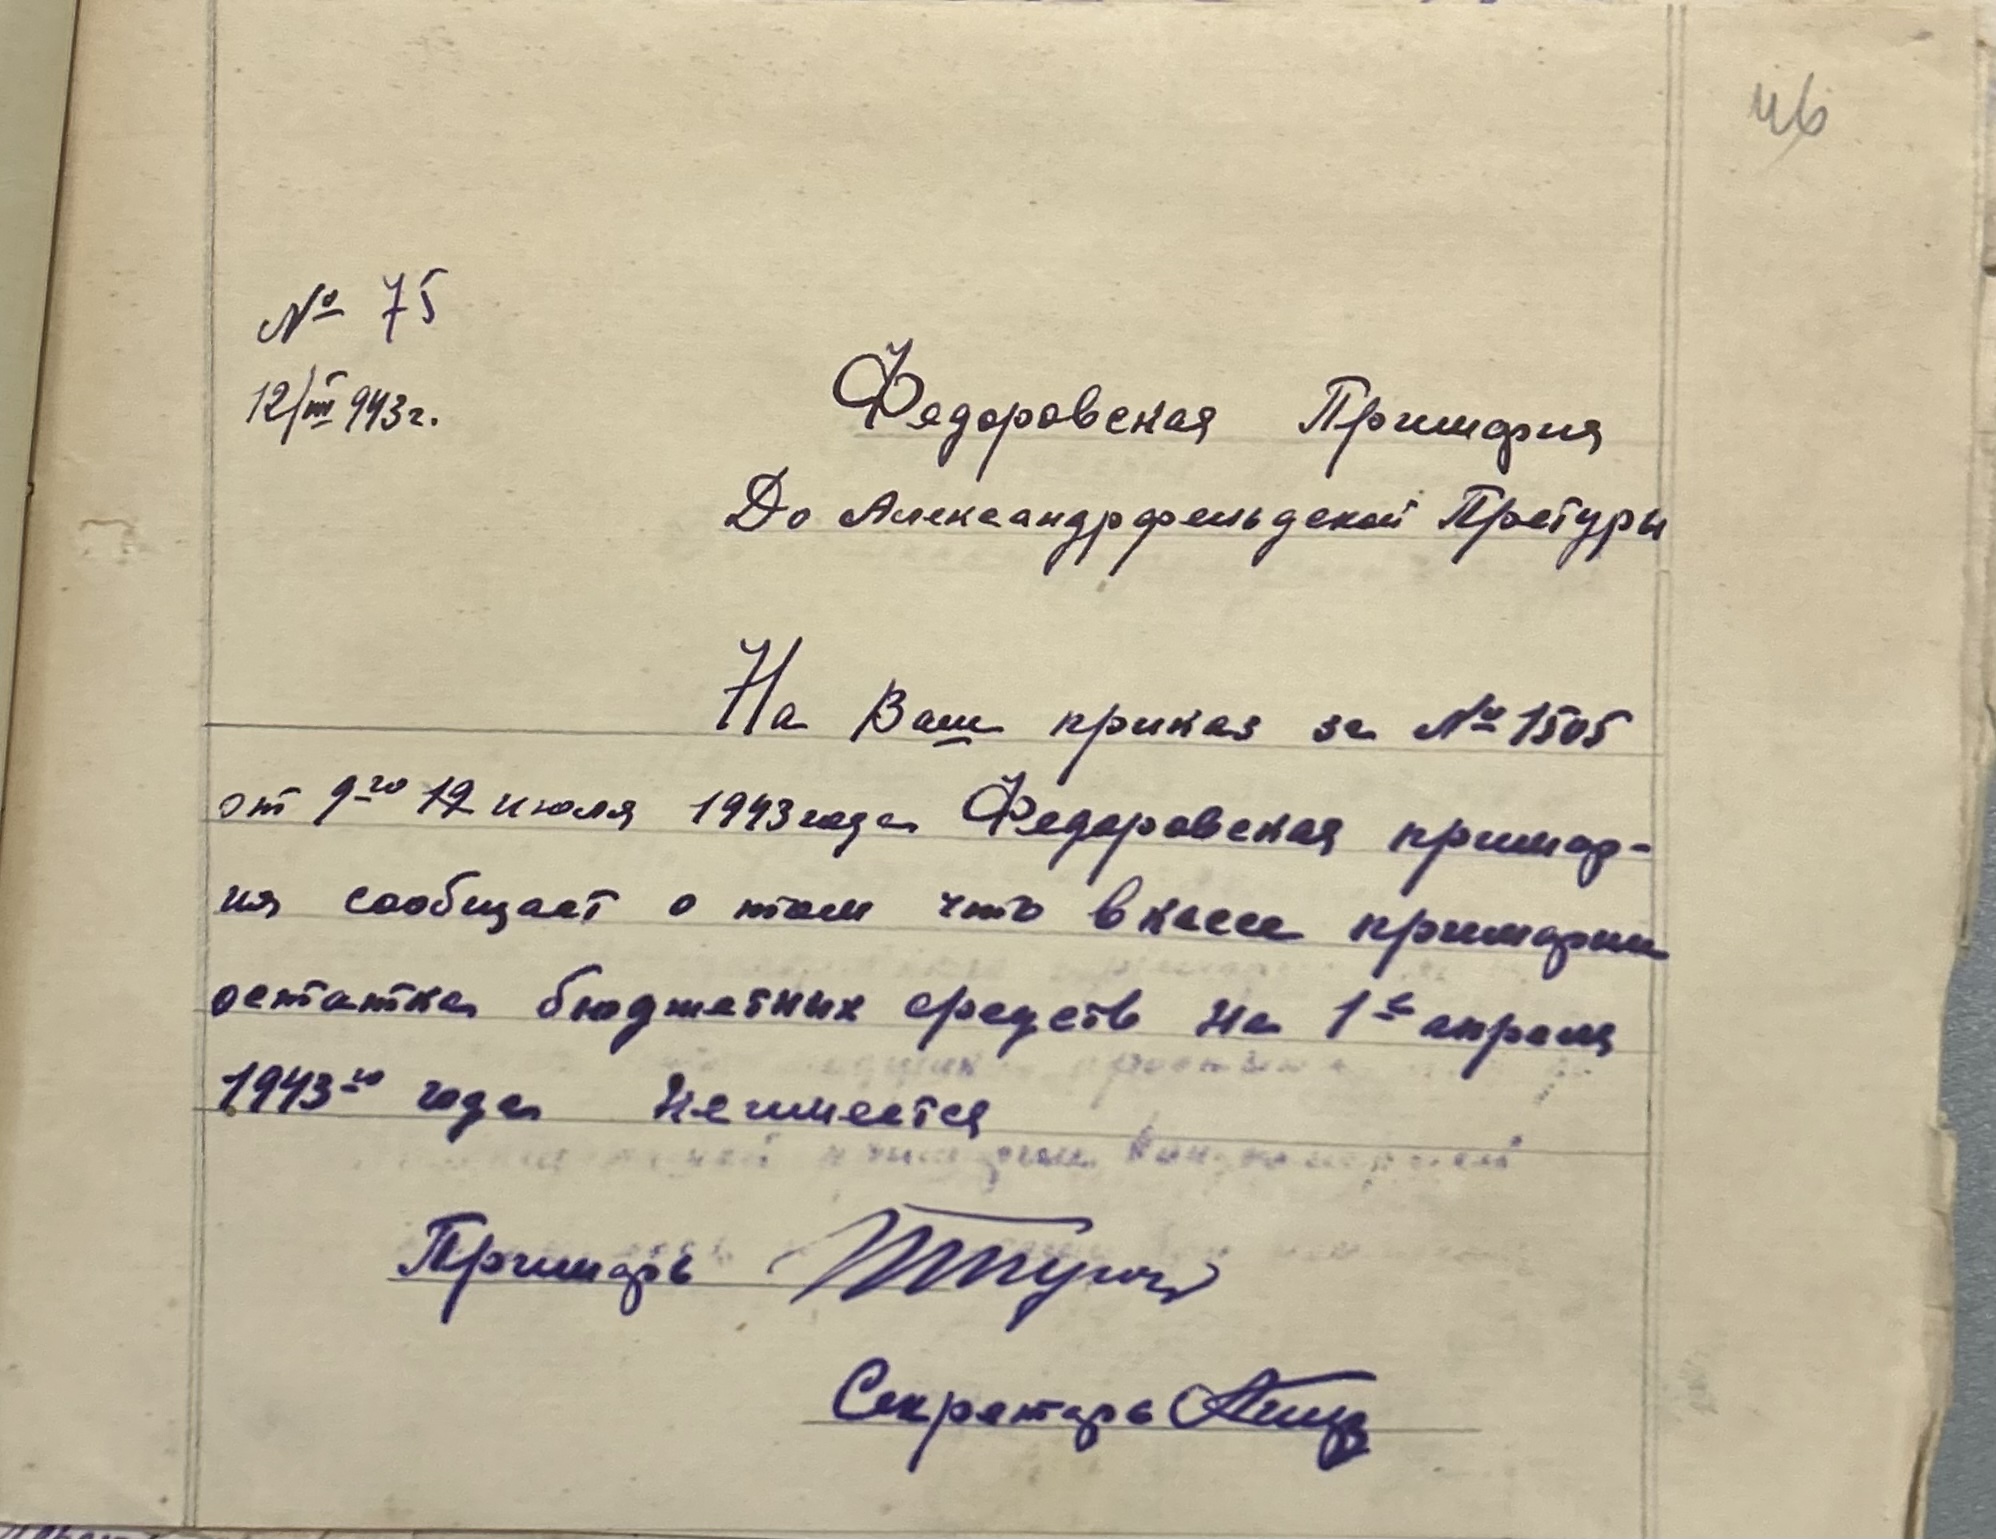 46
№ 75
12/III 943г.
Федоровская Примария
До Александрфельдской Претуры
На Ваш приказ за № 1505
от 9го 12 июля 1943 года Федоровская примар-
ия сообщает о том что в кассе примарии
остатка бюджетных средств на 1е апреля
1943го года не имеется
Примарь
Секретарь